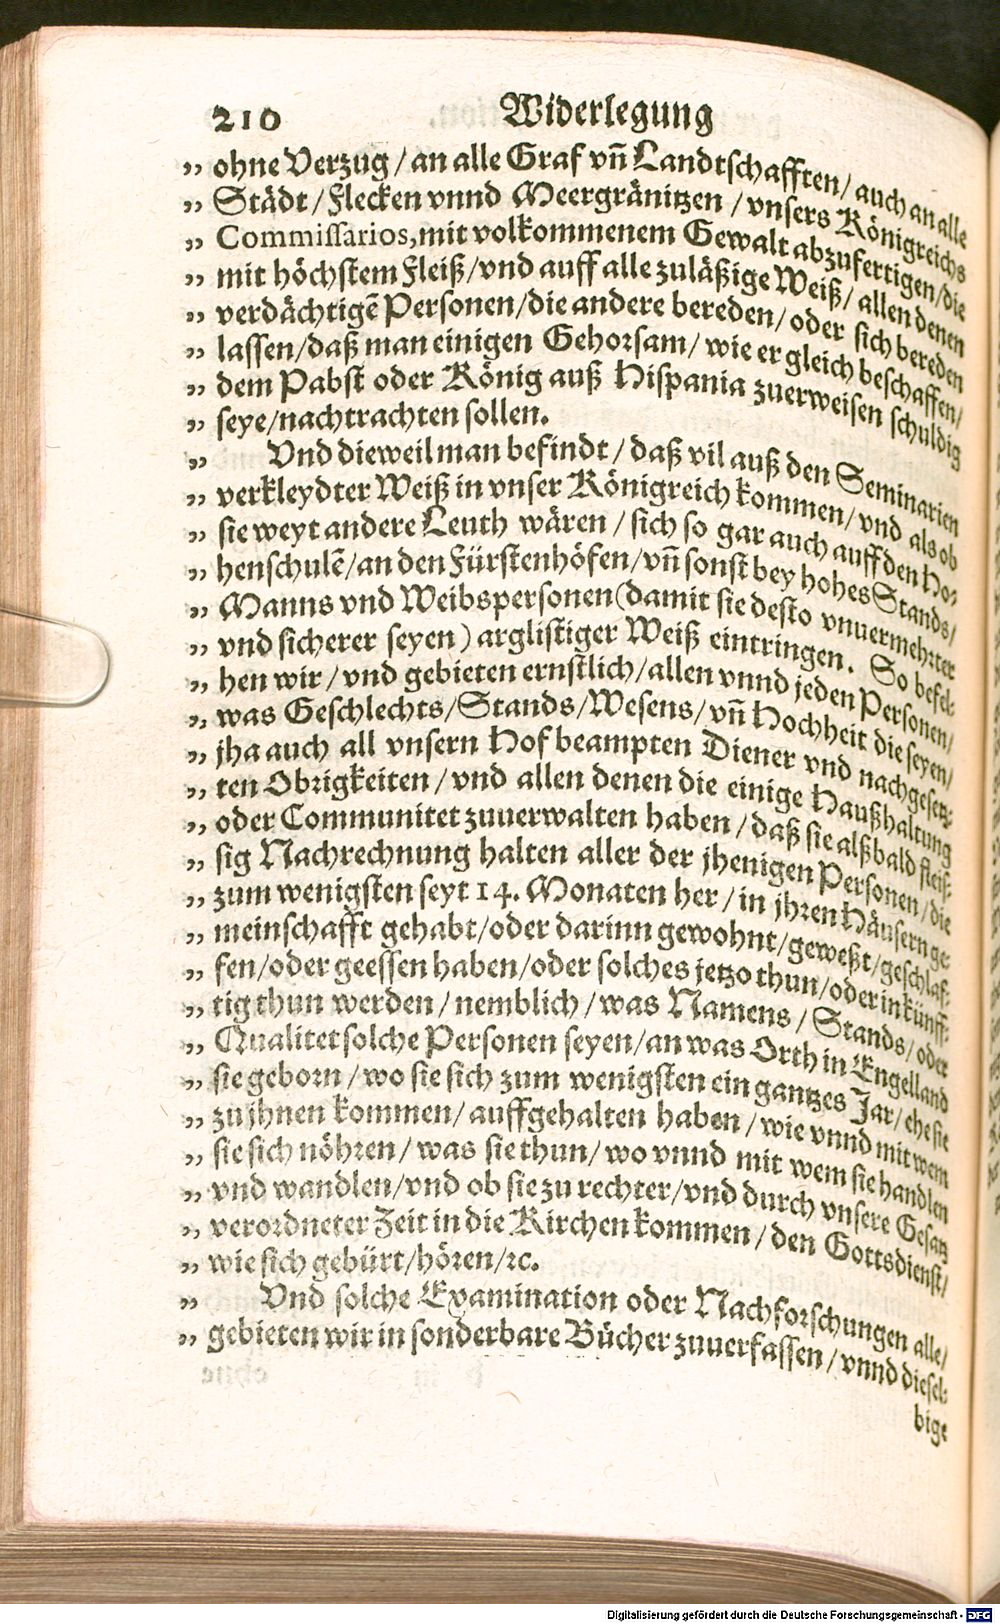 210 Widerlegung
„ ohne Verzug / an alle Graf vñ Landtschafften / auch an alle
„ Städt / Flecken vnnd Meergränitzen / vnsers Königreichs
„ Commissarios, mit volkommenem Gewalt abzufertigen / die
„ mit höchstem Fleiß / vnd auff alle zuläßige Weiß / allen denen
„ verdächtigẽ Personen / die andere bereden / oder sich bereden
„ lassen / daß man einigen Gehorsam / wie er gleich beschaffen /
„ dem Pabst oder König auß Hispania zuerweisen schuldig
„ seye / nachtrachten sollen.
„ Vnd dieweil man befindt / daß vil auß den Seminarien
„ verkleydter Weiß in vnser Königreich kommen / vnd als ob
„ sie weyt andere Leuth wären / sich so gar auch auff den Ho⸗
„ henschulẽ / an den Fürstenhöfen / vñ sonst bey hohes Stands /
„ Manns vnd Weibspersonen (damit sie desto vnuermehrter
„ vnd sicherer seyen) arglistiger Weiß eintringen. So befel⸗
„ hen wir / vnd gebieten ernstlich / allen vnnd jeden Personen /
„ was Geschlechts / Stands / Wesens / vñ Hochheit die seyen /
„ jha auch all vnsern Hof beampten Diener vnd nachgesetz⸗
„ ten Obrigkeiten / vnd allen denen die einige Haußhaltung
„ oder Communitet zuuerwalten haben / daß sie alßbald fleis⸗
„ sig Nachrechnung halten aller der jhenigen Personen / die
„ zum wenigsten seyt 14. Monaten her / in jhren Häusern ge⸗
„ meinschafft gehabt / oder darinn gewohnt / geweßt / geschlaf⸗
„ fen / oder geessen haben / oder solches jetzo thun / oder in künff⸗
„ tig thun werden / nemblich / was Namens / Stands / oder
„ Qualitet solche Personen seyen / an was Orth in Engelland
„ sie geborn / wo sie sich zum wenigsten ein gantzes Jar / ehe sie
„ zu jhnen kommen / auffgehalten haben / wie vnnd mit wem
„ sie sich nöhren / was sie thun / wo vnnd mit wem sie handlen
„ vnd wandlen / vnd ob sie zu rechter / vnd durch vnsere Gesatz
„ verordneter Zeit in die Kirchen kommen / den Gottsdienst /
„ wie sich gebürt / hören / ꝛc.
„ Vnd solche Examination oder Nachforschungen alle /
„ gebieten wir in sonderbare Bücher zuuerfassen / vnnd diesel⸗
bige
Digitalisierung gefördert durch die Deutsche Forschungsgemeinschaft - DFG